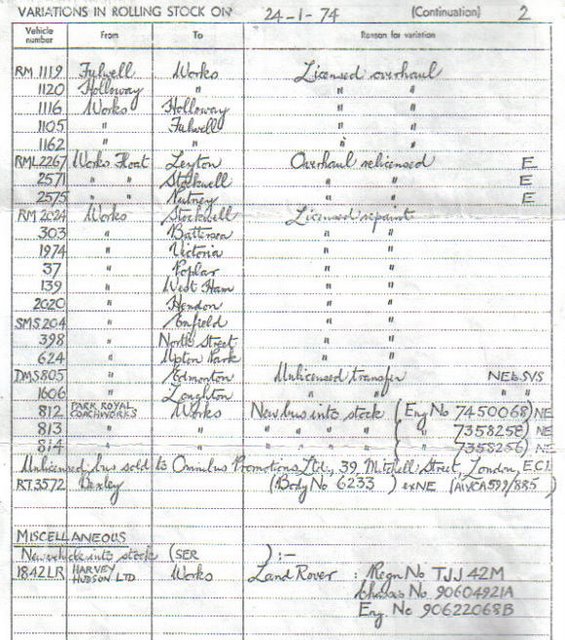 VARIATIONS IN ROLLING STOCK ON 24-1-74 (Continuation) 2
Vehicle number From To Reason for variation
RM 1119 Fulwell Works Licensed overhaul
1120 Holloway " " "
1116 Works Holloway " "
1105 " Fulwell " "
1162 " " " "
RML 2267 Works Float Leyton Overhaul relicensed E
2571 " " Stockwell " " E
2575 " " Putney " " E
RM 2024 Works Stockwell Licensed repaint
303 " Battersea " "
1974 " Victoria " "
37 " Poplar " "
139 " West Ham " "
2020 " Hendon " "
SMS 204 " Enfield " "
398 " North Street " "
624 " Upton Park " "
DMS 805 " Edmonton Unlicensed transfer NE & SVS
1606 " Loughton " " " "
812 PARK ROYAL COACHWORKS Works New bus into stock (Eng No 7450068) NE
813 " " " " " " ( " 7358258) NE
814 " " " " " " ( " 7358256) NE
Unlicensed bus sold to Omnibus Promotions Ltd., 39, Mitchell Street, London, E.C.1.
RT 3572 Bexley (Body No 6233) ex NE (AIVCA 599/885)
MISCELLANEOUS
New vehicle into stock (SER ) :-
1842LR HARVEY HUDSON LTD. Works Land Rover : Regn No TJJ 42M
Chassis No 90604921A
Eng. No 90622068B